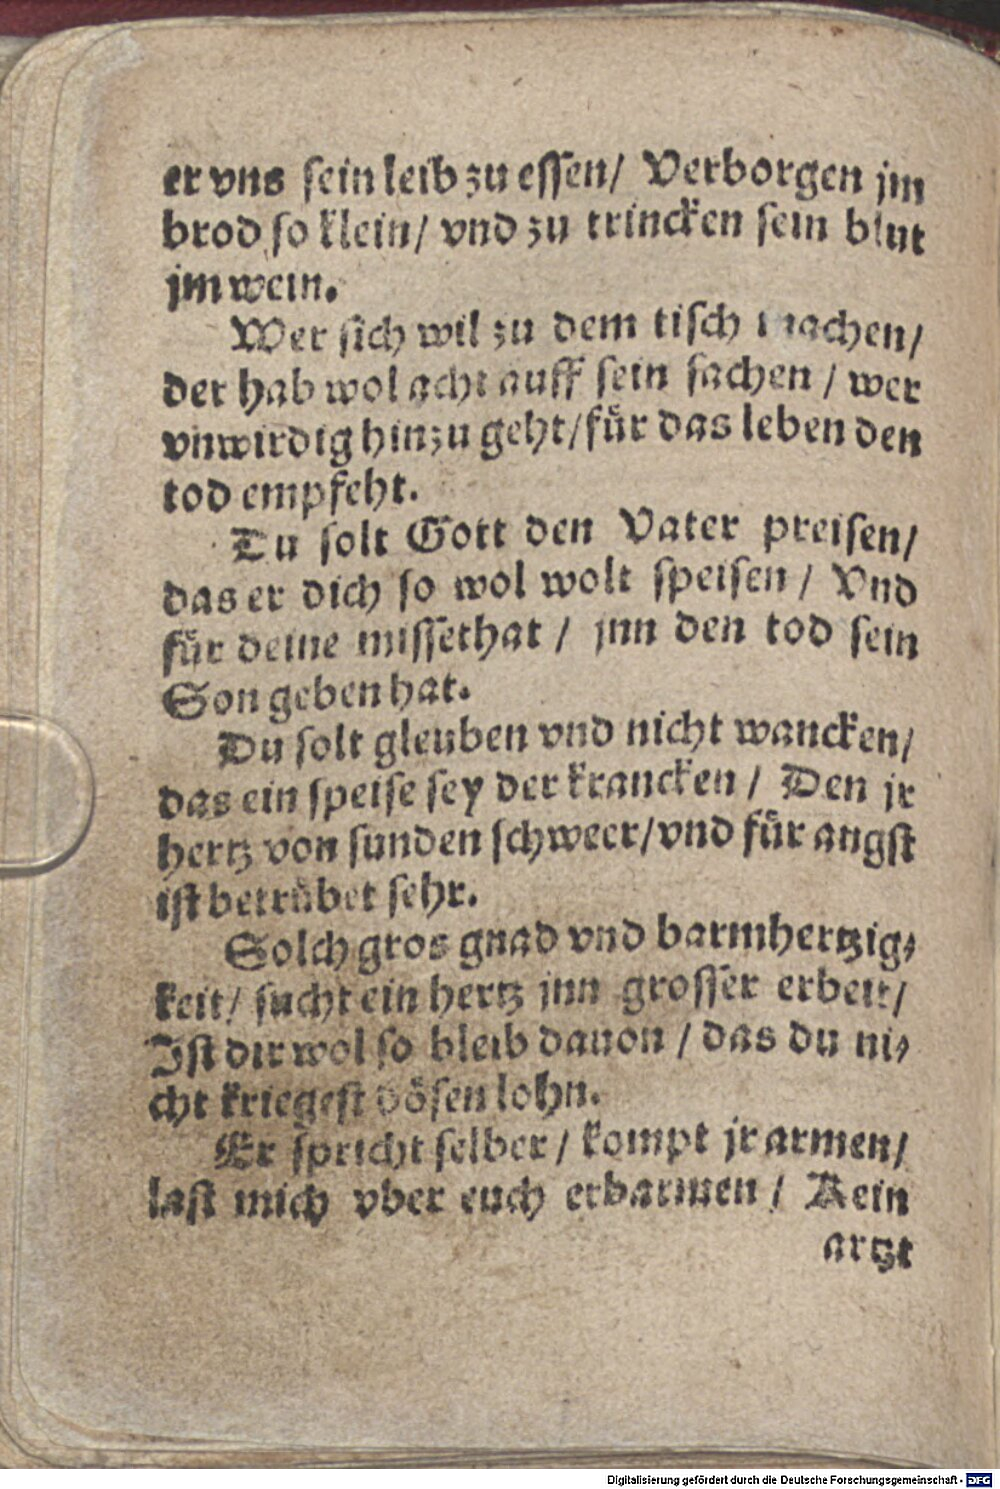 er vns sein leib zu essen/ Verborgen jm
brod so klein/ vnd zu trincken sein blut
jm wein.
Wer sich wil zu dem tisch machen/
der hab wol acht auff sein sachen / wer
vnwirdig hinzu geht/ für das leben den
tod empfeht.
Du solt Gott den Vater preisen/
das er dich so wol wolt speisen / Vnd
für deine missethat / jnn den tod sein
Son geben hat.
Du solt gleuben vnd nicht wancken/
das ein speise sey der krancken / Den jr
hertz von sunden schweer/ vnd für angst
ist betrübet sehr.
Solch gros gnad vnd barmhertzig⸗
keit/ sucht ein hertz jnn grosser erbeit/
Ist dir wol so bleib dauon / das du ni⸗
cht kriegest bösen lohn.
Er spricht selber / kompt jr armen/
last mich vber euch erbarmen / Kein
artzt
Digitalisierung gefördert durch die Deutsche Forschungsgemeinschaft - DFG